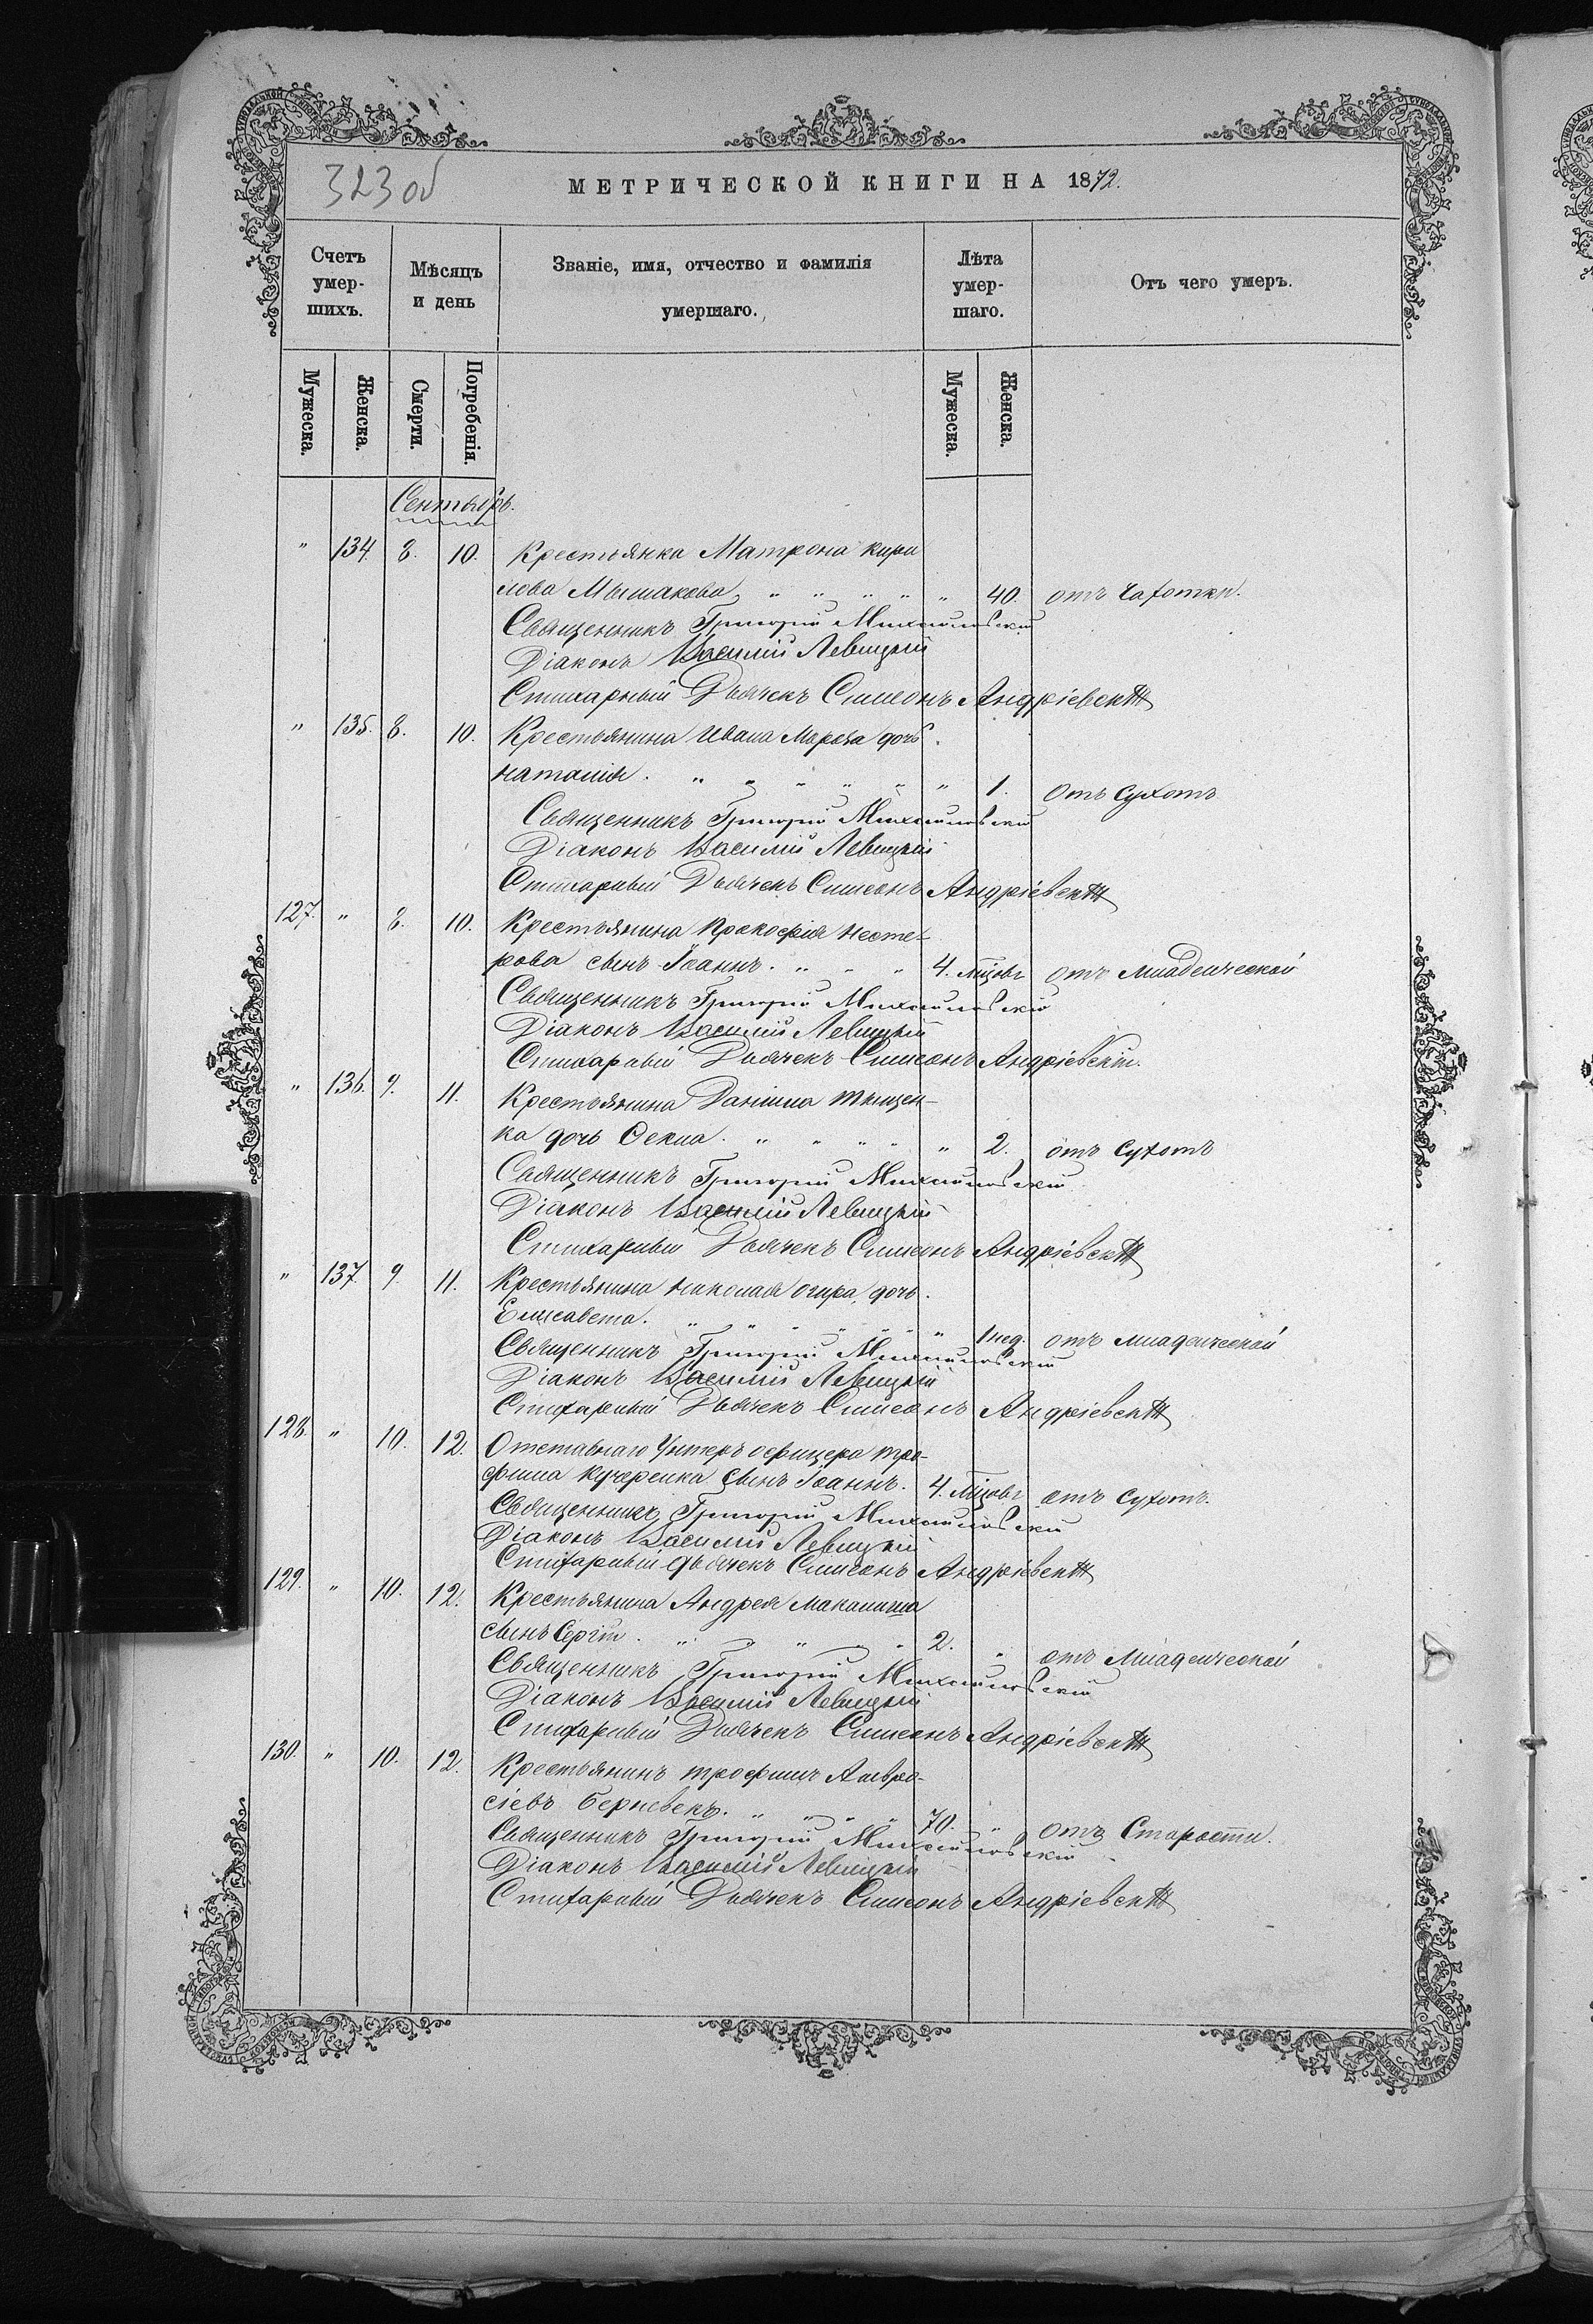 323 об
МЕТРИЧЕСКОЙ КНИГИ НА 1872.
Счетъ умер-шихъ. Мѣсяцъ и день Званіе, имя, отчество и фамилія умершаго. Лѣта умер-шаго. Отъ чего умеръ.
Мужеска. Женска. Смерти. Погребенія. Мужеска. Женска.
Сентябрь.
" 134. 8. 10. Крестьянка Матрона Кири
лова Мышакова, " " " " " 40. отъ Чахотки.
Священникъ Григорій Михайловскій
Діаконъ Василій Левицкій
Стихарный Дьячекъ Симеонъ Андріевскій
" 135. 8. 10. Крестьянина Ивана Мороза дочь
Наталія. " " " " " " 1. Отъ Сухотъ
Священникъ Григорій Михайловскій
Діаконъ Василій Левицкій
Стихарный Дьячекъ Симеонъ Андріевскій
127. " 8. 10. Крестьянина Прокофія Несте-
рова сынъ Іоаннъ. " " " 4. мѣцовъ отъ Младенческой
Священникъ Григорій Михайловскій
Діаконъ Василій Левицкій
Стихарный Дьячекъ Симеонъ Андріевскій.
" 136. 9. 11. Крестьянина Даніила Тищен-
ка дочь Ѳекла. " " " " " 2. отъ Сухотъ
Священникъ Григорій Михайловскій
Діаконъ Василій Левицкій
Стихарный Дьячекъ Симеонъ Андріевскій
" 137. 9. 11. Крестьянина Николая Огира, дочь
Елисавета. " " " " " " " 1 нед. отъ младенческой
Священникъ Григорій Михайловскій
Діаконъ Василій Левицкій
Стихарный Дьячекъ Симеонъ Андріевскій
128. " 10. 12. Отставнаго Унтеръ офицера Тро-
фима Кучеренка сынъ Іоаннъ. 4. мѣцовъ отъ Сухотъ.
Священникъ Григорій Михайловскій
Діаконъ Василій Левицкій
Стихарный дьячекъ Симеонъ Андріевскій
129. " 10. 12. Крестьянина Андрея
сынъ Сергій. " " " " " 2. " отъ Младенческой
Священникъ Григорій Михайловскій
Діаконъ Василій Левицкій
Стихарный Дьячекъ Симеонъ Андріевскій
130. " 10. 12. Крестьянинъ Трофимъ Амвро-
сіевъ " " " " 70. " отъ Старости.
Священникъ Григорій Михайловскій
Діаконъ Василій Левицкій
Стихарный Дьячекъ Симеонъ Андріевскій